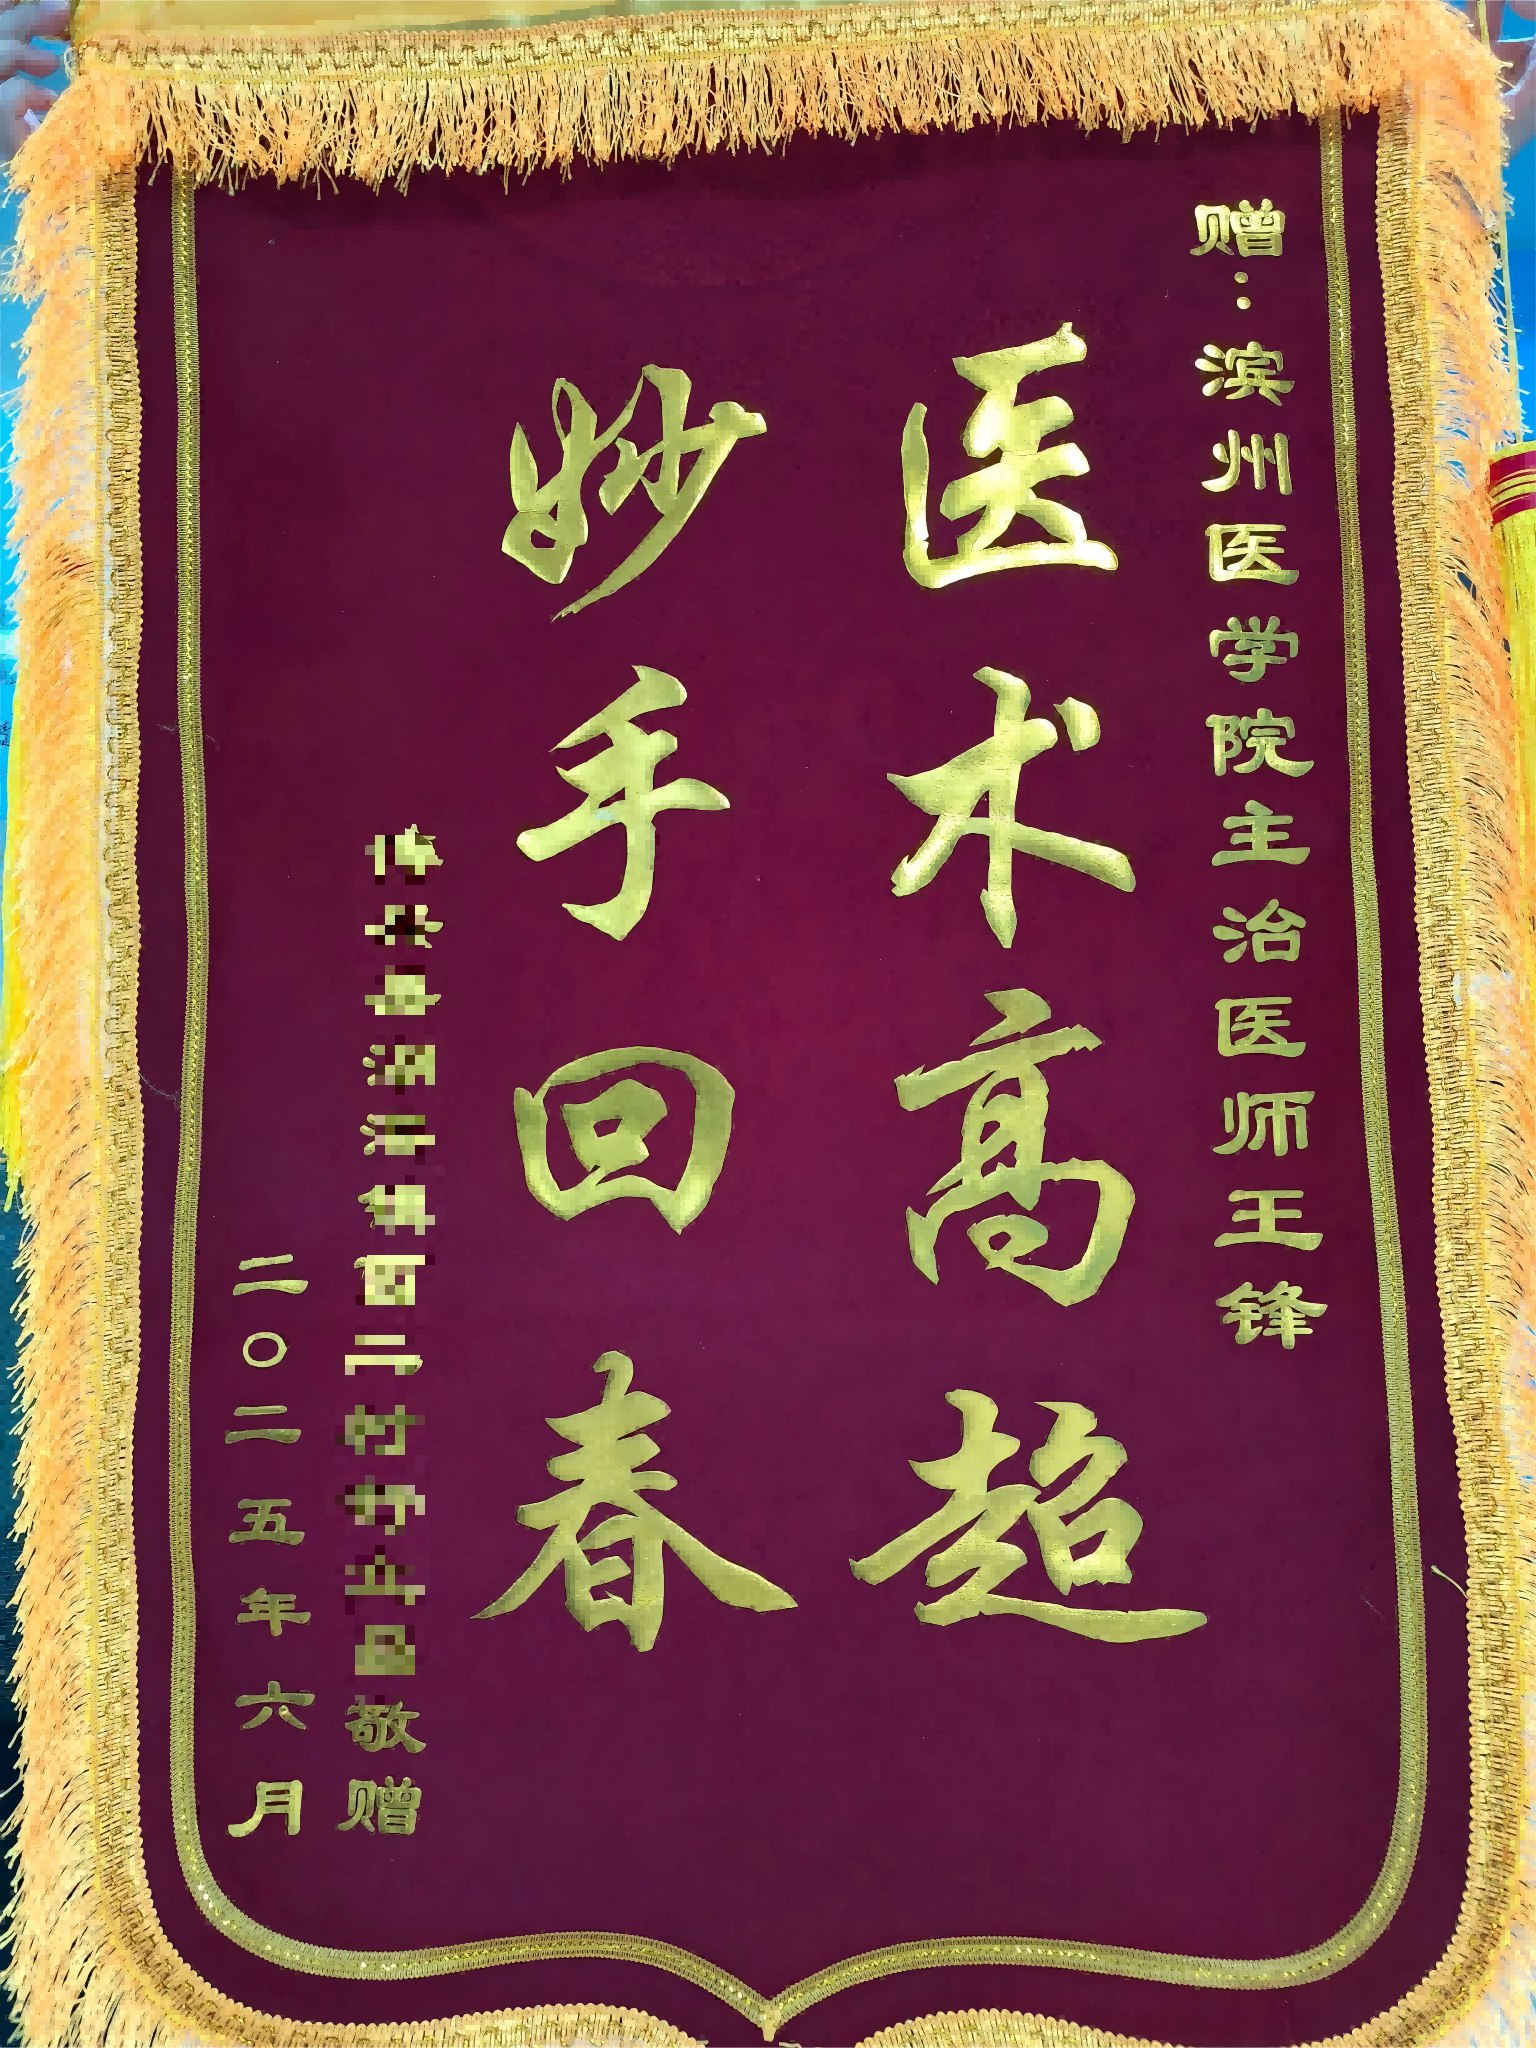 赠：滨州医学院主治医师王锋
医术高超
妙手回春
敬赠
二〇二五年六月